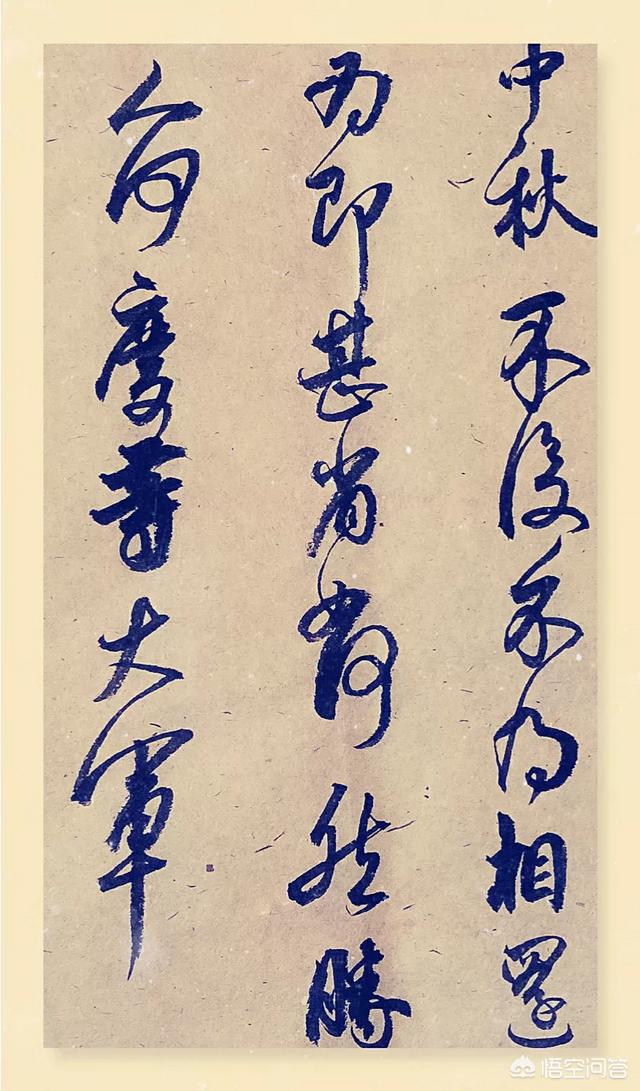 中秋不復不得相還
為即甚省如何然勝
人何慶等大軍
悟空问答